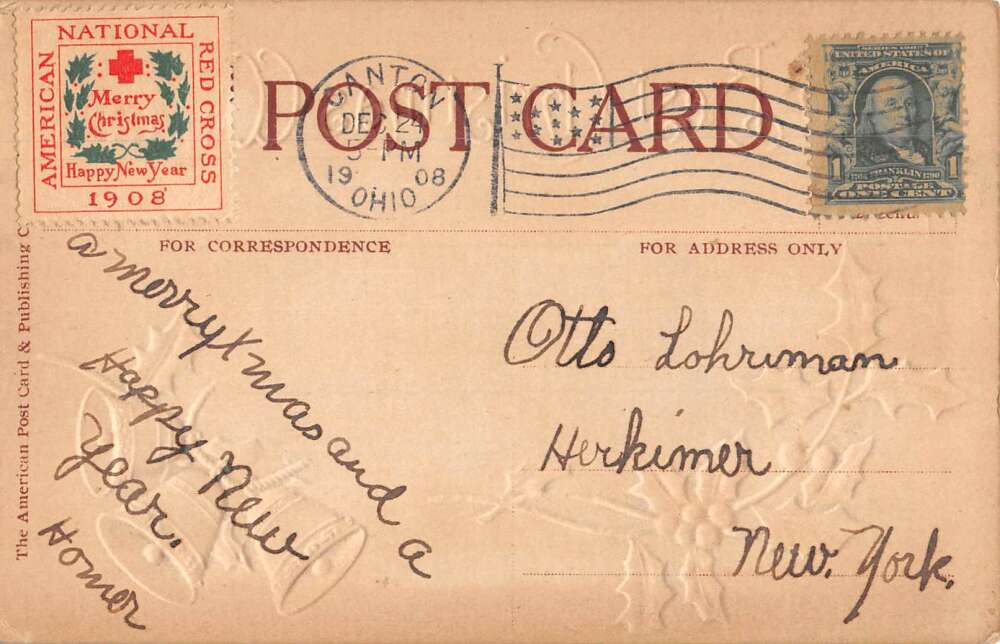 NATIONAL
AMERICAN
RED CROSS
Merry
Christmas
Happy New Year
1908
POST CARD
CANTON
DEC 24
PM
19 08
OHIO
SERIES 1902
UNITED STATES OF
AMERICA
1 FRANKLIN 1
POSTAGE
ONE CENT
FOR CORRESPONDENCE
FOR ADDRESS ONLY
The American Post Card & Publishing C
a merry Xmas and a
Happy New
year.
Homer
Otto Lohriman
Herkimer
New. York.